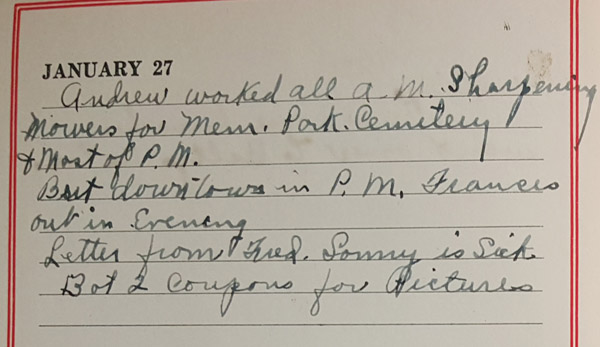 JANUARY 27
Andrew worked all a.M. Sharpening
Mowers for Mem. Park. Cemetery
& Most of P.M.
But downtown in P.M. Frances
out in Evening
Letter from Fred. Sonny is Sick.
Bot 2 Coupons for Pictures